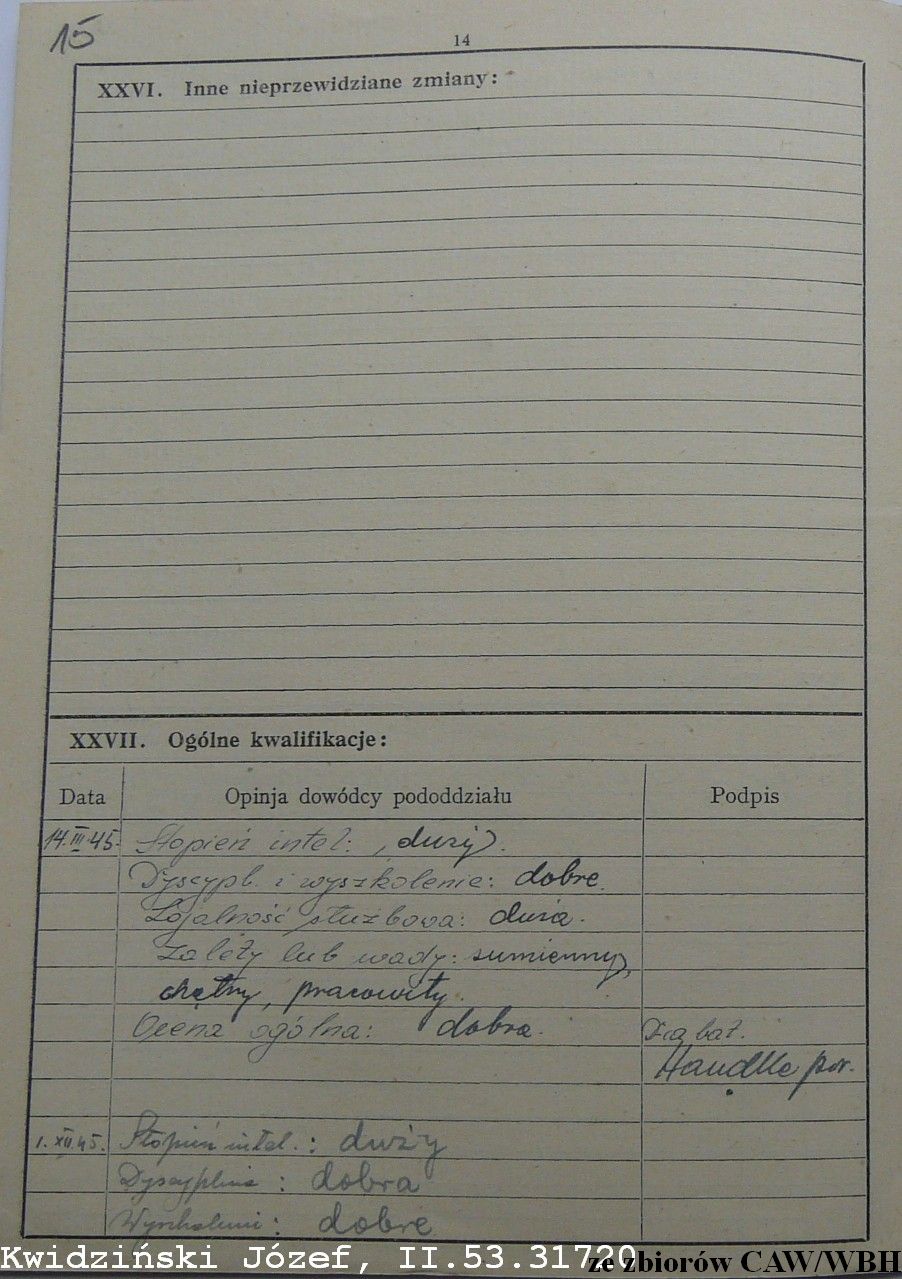 15
14
XXVI. Inne nieprzewidziane zmiany:
XXVII. Ogólne kwalifikacje:
Data Opinja dowódcy pododdziału Podpis
14.III.45. Stopień intel: duży.
Dyscypl. i wyszkolenie: dobre.
Lojalność służbowa: duża.
Zalety lub wady: sumienny,
chętny, pracowity.
Ocena ogólna: dobra. bat.
por.
1.XII.45. Stopień intel.: duży
Dyscyplina: dobra
Wyszkolenie: dobre
Kwidziński Józef, II.53.31720
ze zbiorów CAW/WBH